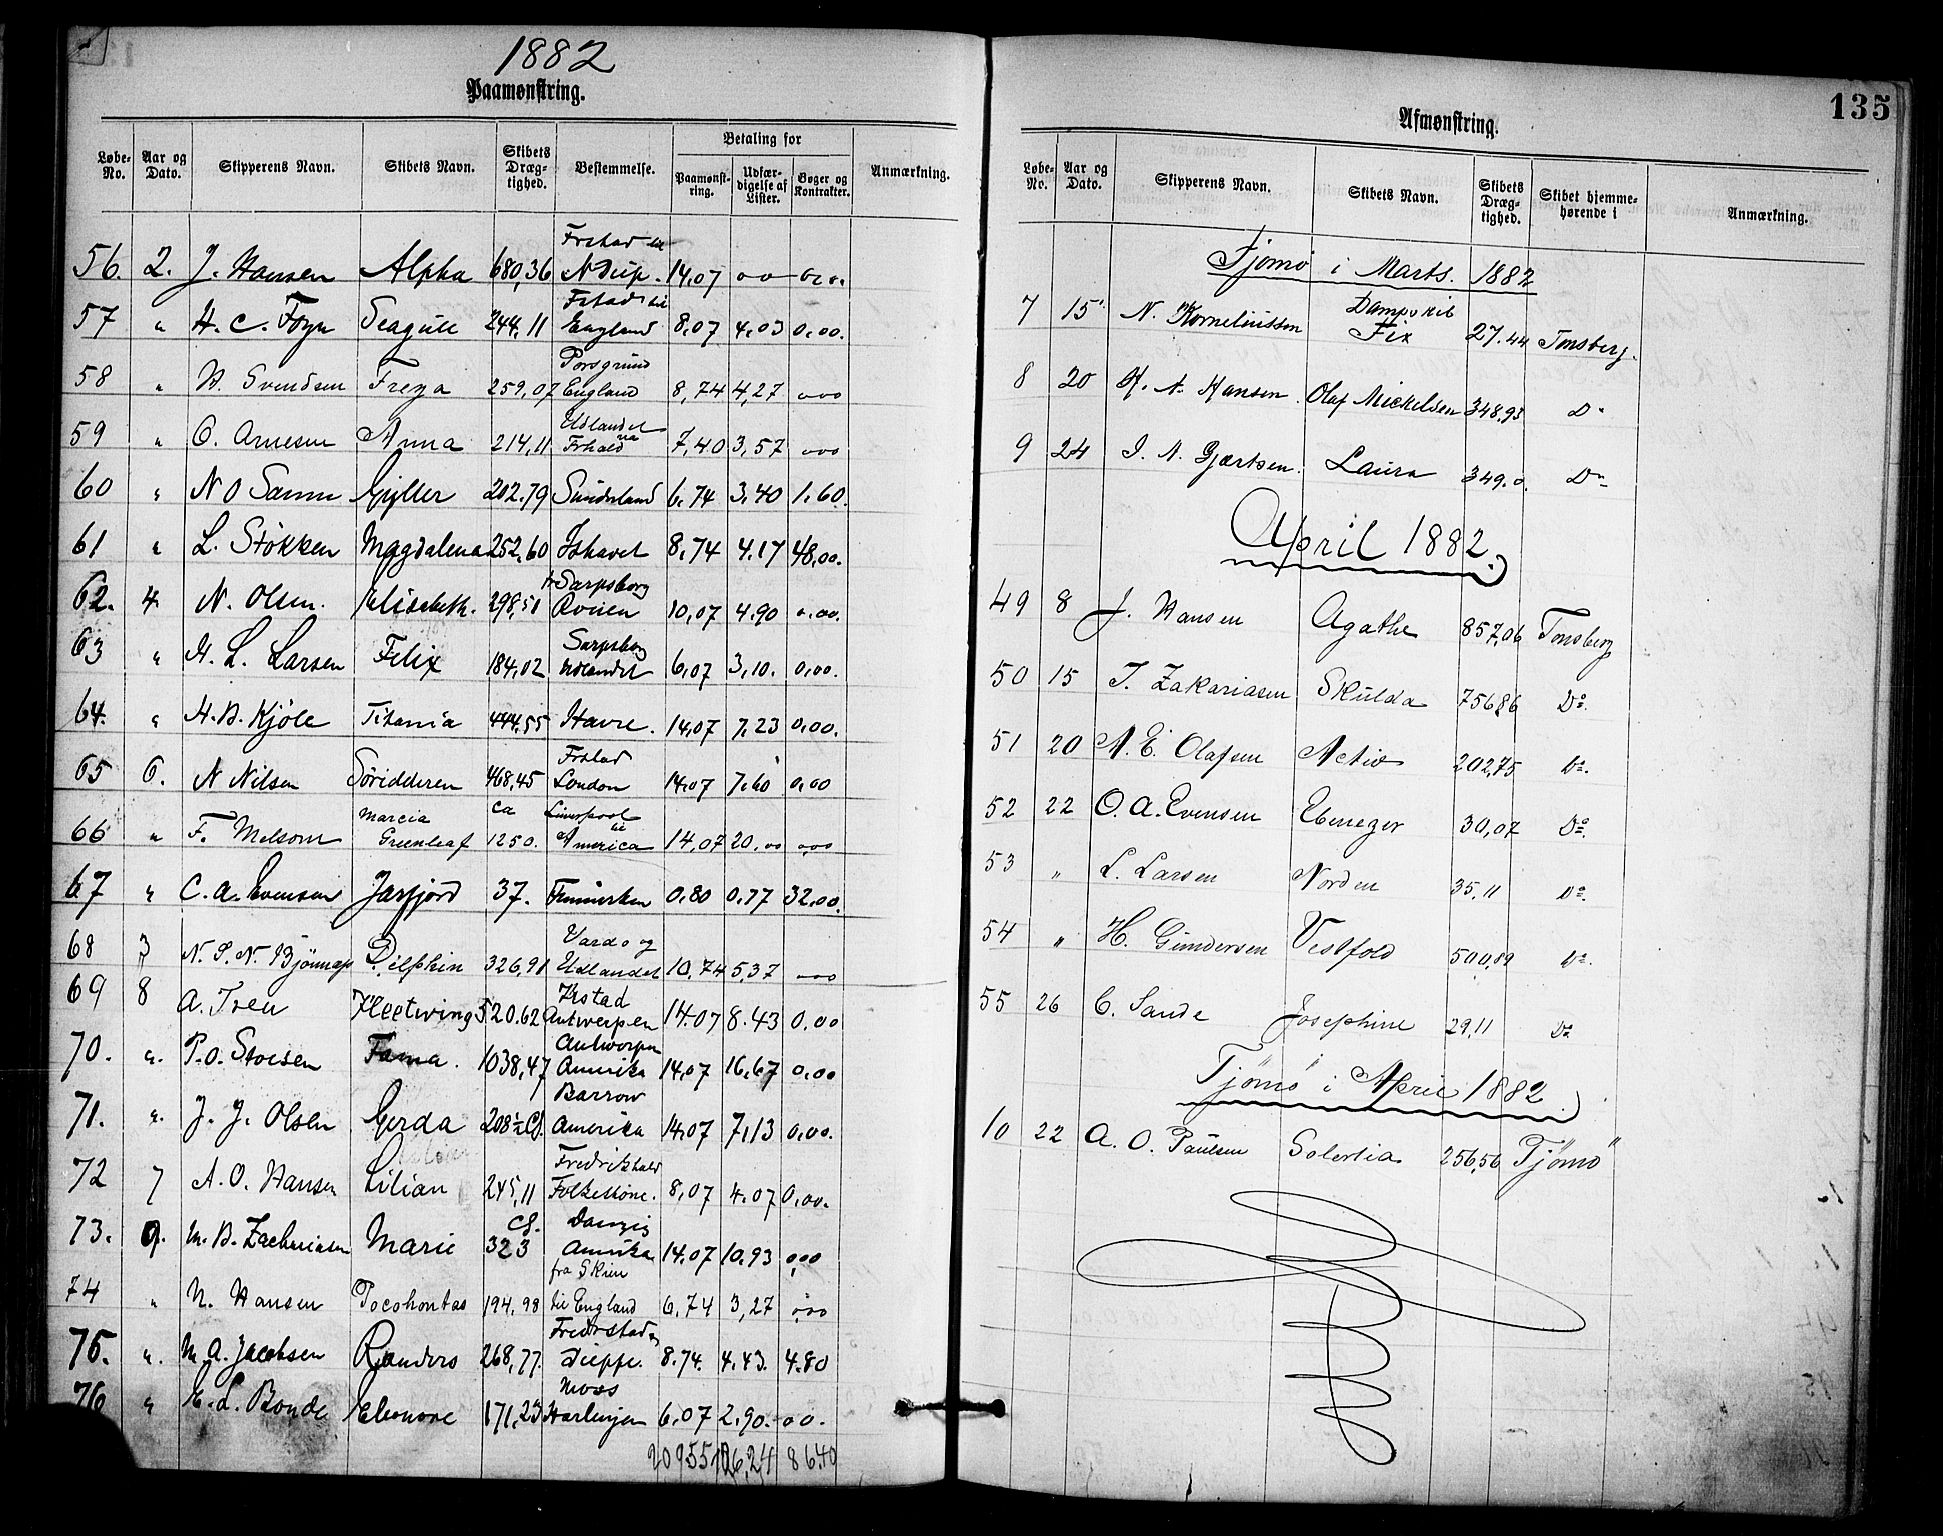 1882
Paamønstring.
Løbe-No. Aar og Dato. Skipperens Navn. Skibets Navn. Skibets Dræg-tighed. Bestemmelse. Betaling for Paamønst-ring. Udfær-digelse af Lister. Bøger og Kontrakter. Anmærkning.
56. 2. J. Hansen Alpha 680,36 Frstad til N Diep. 14,07 00 0,00.
57 " H. C. Foyn Seagull 244,11 Frstad til England 8,07 4,03 0,00.
58 " H. Svendsen Freya 259,07 Porsgrund England 8,74 4,27 000
59 " O. Arnesen Anna 214,11 Udlandet via Frhald 7,40 3,57 000
60 " N O Sanne Gyller 202.79 Sunderland 6,74 3,40 1.60.
61 " L. Stokken Magdalena 252,60 Ishavet 8,74 4.17 48,00.
62. 4. N. Olsen. Elisabeth. 298,51 fr Sarpsborg Rouen 10,07 4.90 0,00.
63 " H. L. Larsen Felix 184,02 Sarpsborg Udlandet 6,07 3,10. 0,00.
64. " H. B. Kjöle Titania 444,55 Havre. 14,07 7,23 0,00.
65 6. N Nilsen Söridderen 468,45 Frstad London 14,07 7,60 0,00
66 " F. Melsom Marcia Greenleaf ca 1250. Liverpool til America 14,07 20,00 0,00
67 " C. A. Evensen Jarfjord 37. Finmarken 0,80 0,77 32,00.
68 3 N. S. N. Bjönnæs Delphin 326,91 Vardo og Udlandet 10,74 5,37 000
69 8 A. Treu Fleetwing 520.62 Frstad Antwerpen 14,07 8.43 0,00
70. ". P. O. Stoesen Fama. 1038,47 Antwerpen Amerika 14,07 16,67 0,00
71. ". J. J. Olsen Gerda 208½ Cl. Barrow Amerika 14,07 7,13 0,00.
72 7 A. O. Hansen Lilian 245,11 Fredrikhald Folkestone. 8,07 4,07 0,00.
73. 9. M. B. Zachariasen Marie Cl. 323 Danzig Amerika 14,07 10,93 0,00
74 " N. Hansen Pocohontas 194,98 fra Skien til England 6,74 3,27 0,00
75. ". M. A. Jacobsen Randers 268,77. Fredrstad Dieppe. 8,74. 4.43. 4.80
76 " E. L. Bonde Eleonore 171,23 Moss Harlingen 6,07 2,90. 00.
209,55 126,24 86,40
135
Afmønstring.
Løbe-No. Aar og Dato. Skipperens Navn. Skibets Navn. Skibets Dræg-tighed. Skibet hjemme-hørende i Anmærkning.
Tjømø i Marts. 1882
7 15 N. Korneliussen Dampskib Fix 27.44 Tønsberg.
8 20 H. A. Hansen Olaf Mickelsen 348,93 Do
9 24 I. A. Gjærtsen. Laura 349.0. Do
April 1882.
49 8 J. Hansen Agathe 857,06 Tønsberg
50 15 T. Zakariasen Skulda 756,86 Do.
51 20 A. E. Olafsen Activ 202,75 Do.
52 22 O. A. Evensen Ebenezer 30,07 Do.
53 " L. Larsen Norden 35,11 Do.
54 " H. Gundersen Vestfold 500,89 Do.
55 26 C. Sande Josephine 29,11 Do
Tjømø i April 1882.
10 22 A. O. Paulsen Solertia 256,56 Tjømø